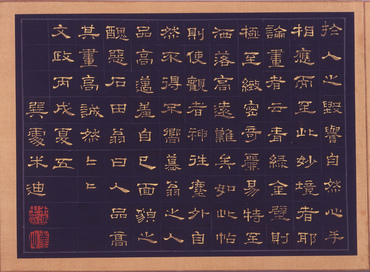 於人之毀譽自然心手
相應而至此妙境者耶
論畫者云青綠金碧則
極至緻密奇麗易特至
洒落高遠難矣如此帖
則使觀者神往塵外自
然不得不嚮慕翁之人
品高邁蓋自己面貌之
醜惡石田翁曰人品高
其畫高誠然〻〻
文政丙戌夏五
巽米迪